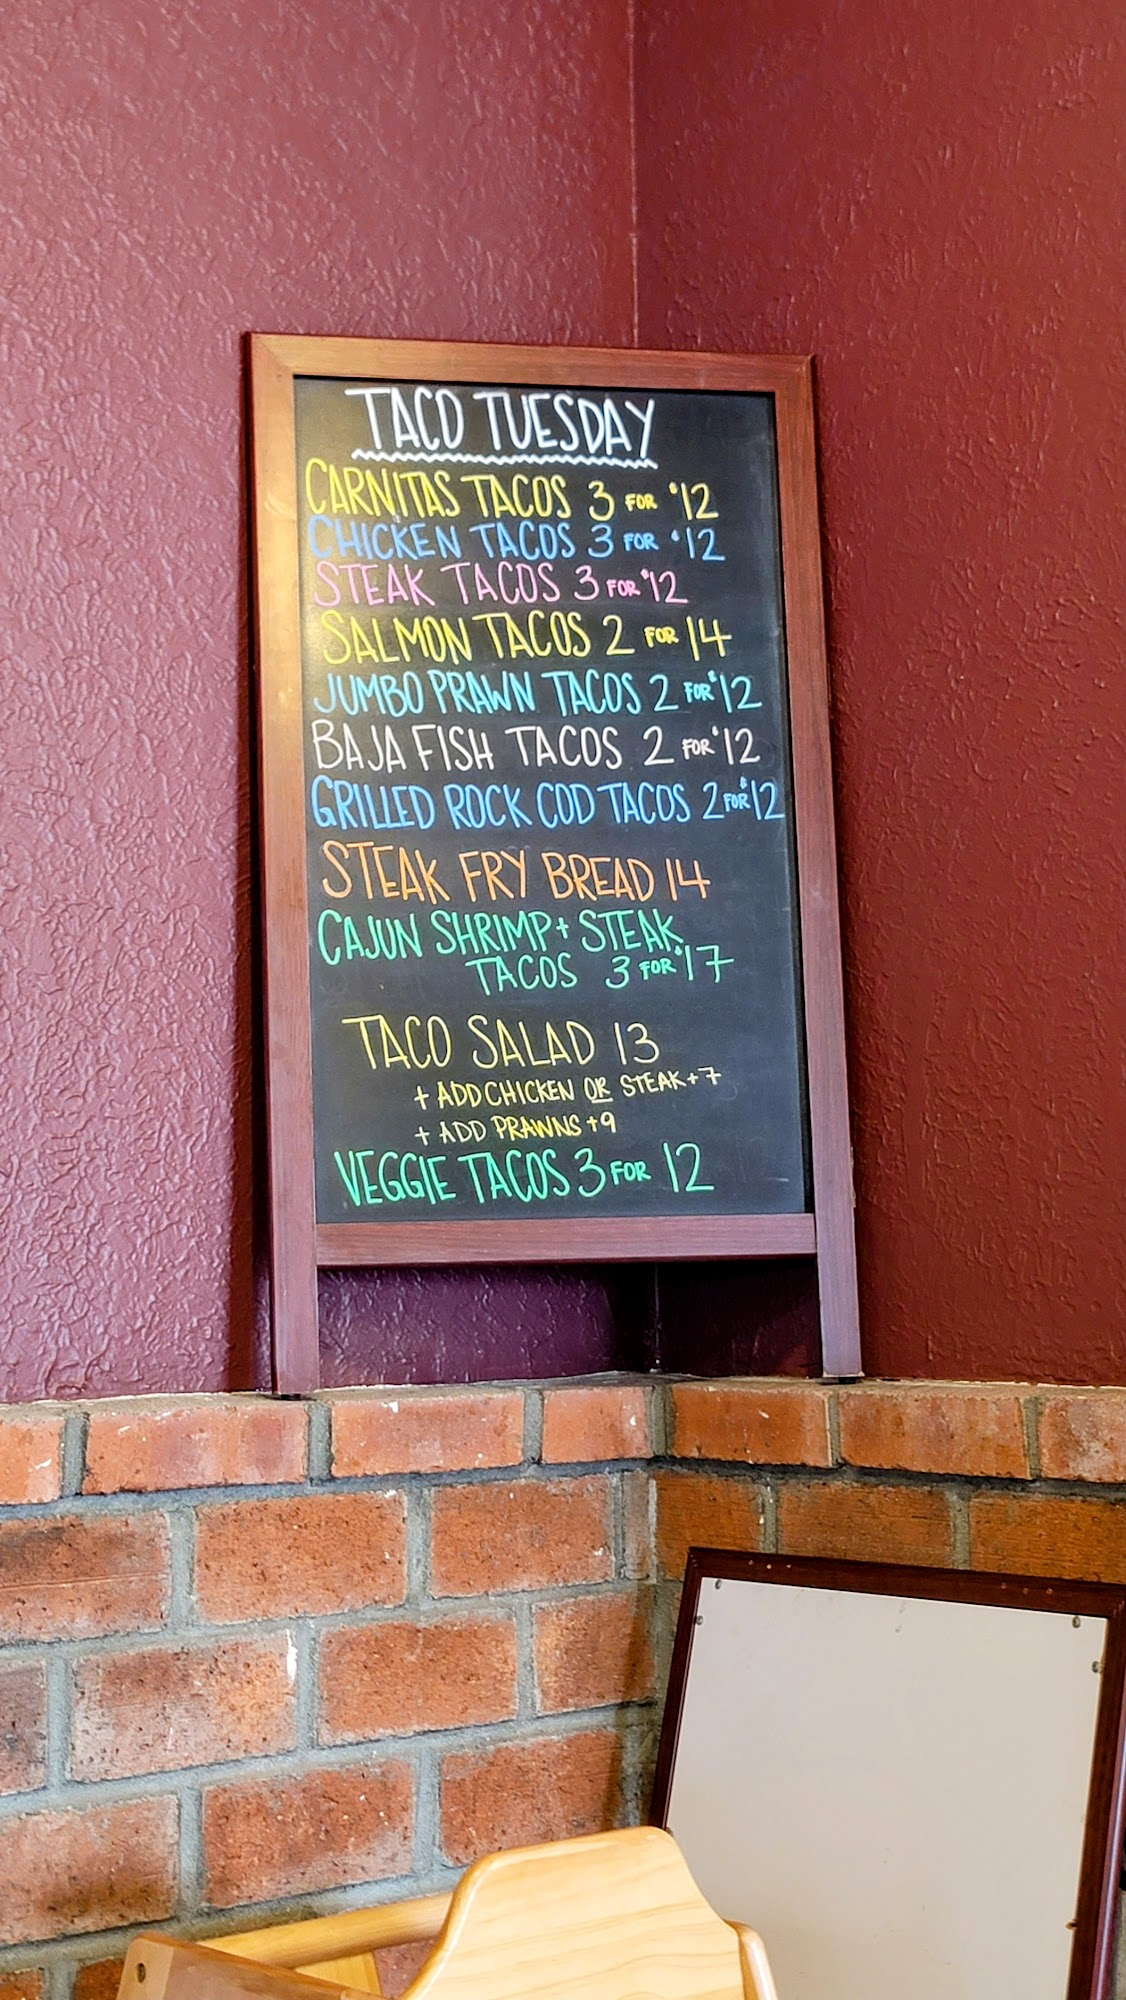 TACO TUESDAY
CARNITAS TACOS 3 FOR $12
CHICKEN TACOS 3 FOR $12
STEAK TACOS 3 FOR $12
SALMON TACOS 2 FOR 14
JUMBO PRAWN TACOS 2 FOR $12
BAJA FISH TACOS 2 FOR $12
GRILLED ROCK COD TACOS 2 FOR $12
STEAK FRY BREAD 14
CAJUN SHRIMP + STEAK
TACOS 3 FOR $17
TACO SALAD 13
+ ADD CHICKEN OR STEAK +7
+ ADD PRAWNS +9
VEGGIE TACOS 3 FOR 12